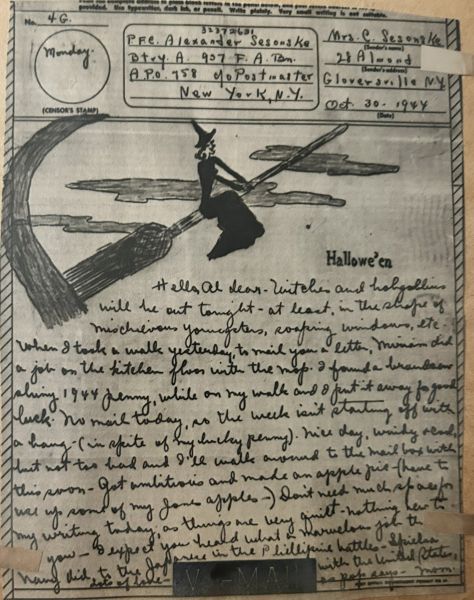 No. 4G.
Monday.
(CENSOR'S STAMP)
32372631
PFC. Alexander Sesonske
Btry. A. 937 F.A. Bn.
A.P.O. 758 c/o Postmaster
New York, N.Y.
Mrs. C. Sesonske
(Sender's name)
28 Almond
(Sender's address)
Gloversville N.Y.
Oct 30 - 1944
(Date)
Hallowe'en
Hello Al dear - Witches and hobgoblins
will be out tonight - at least, in the shape of
mischievous youngsters, soaping windows, etc.
When I took a walk yesterday, to mail you a letter, Miriam did
a job on the kitchen floor with the mop. I found a brand new
shiny 1944 penny, while on my walk and I put it away for good
luck. No mail today, so the week isn't starting off with
a bang - (in spite of my lucky penny). Nice day, windy
but not too bad and I'll walk around to the mail box with
this soon - Got ambitious and made an apple pie - (have to
use up some of my apples -) Don't need much space for
my writing today, as things are very quiet - nothing new to
you - I expect you heard what a marvelous job the
navy did to the Japanese in the Phillipine battles -
lots of love - as pop says - Mom.
V-MAIL